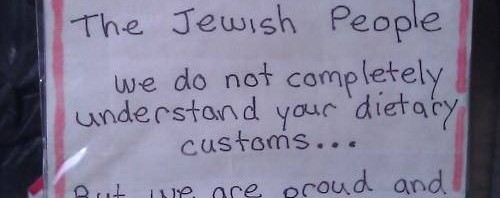 The Jewish People
we do not completely
understand your dietary
customs...
But we are proud and